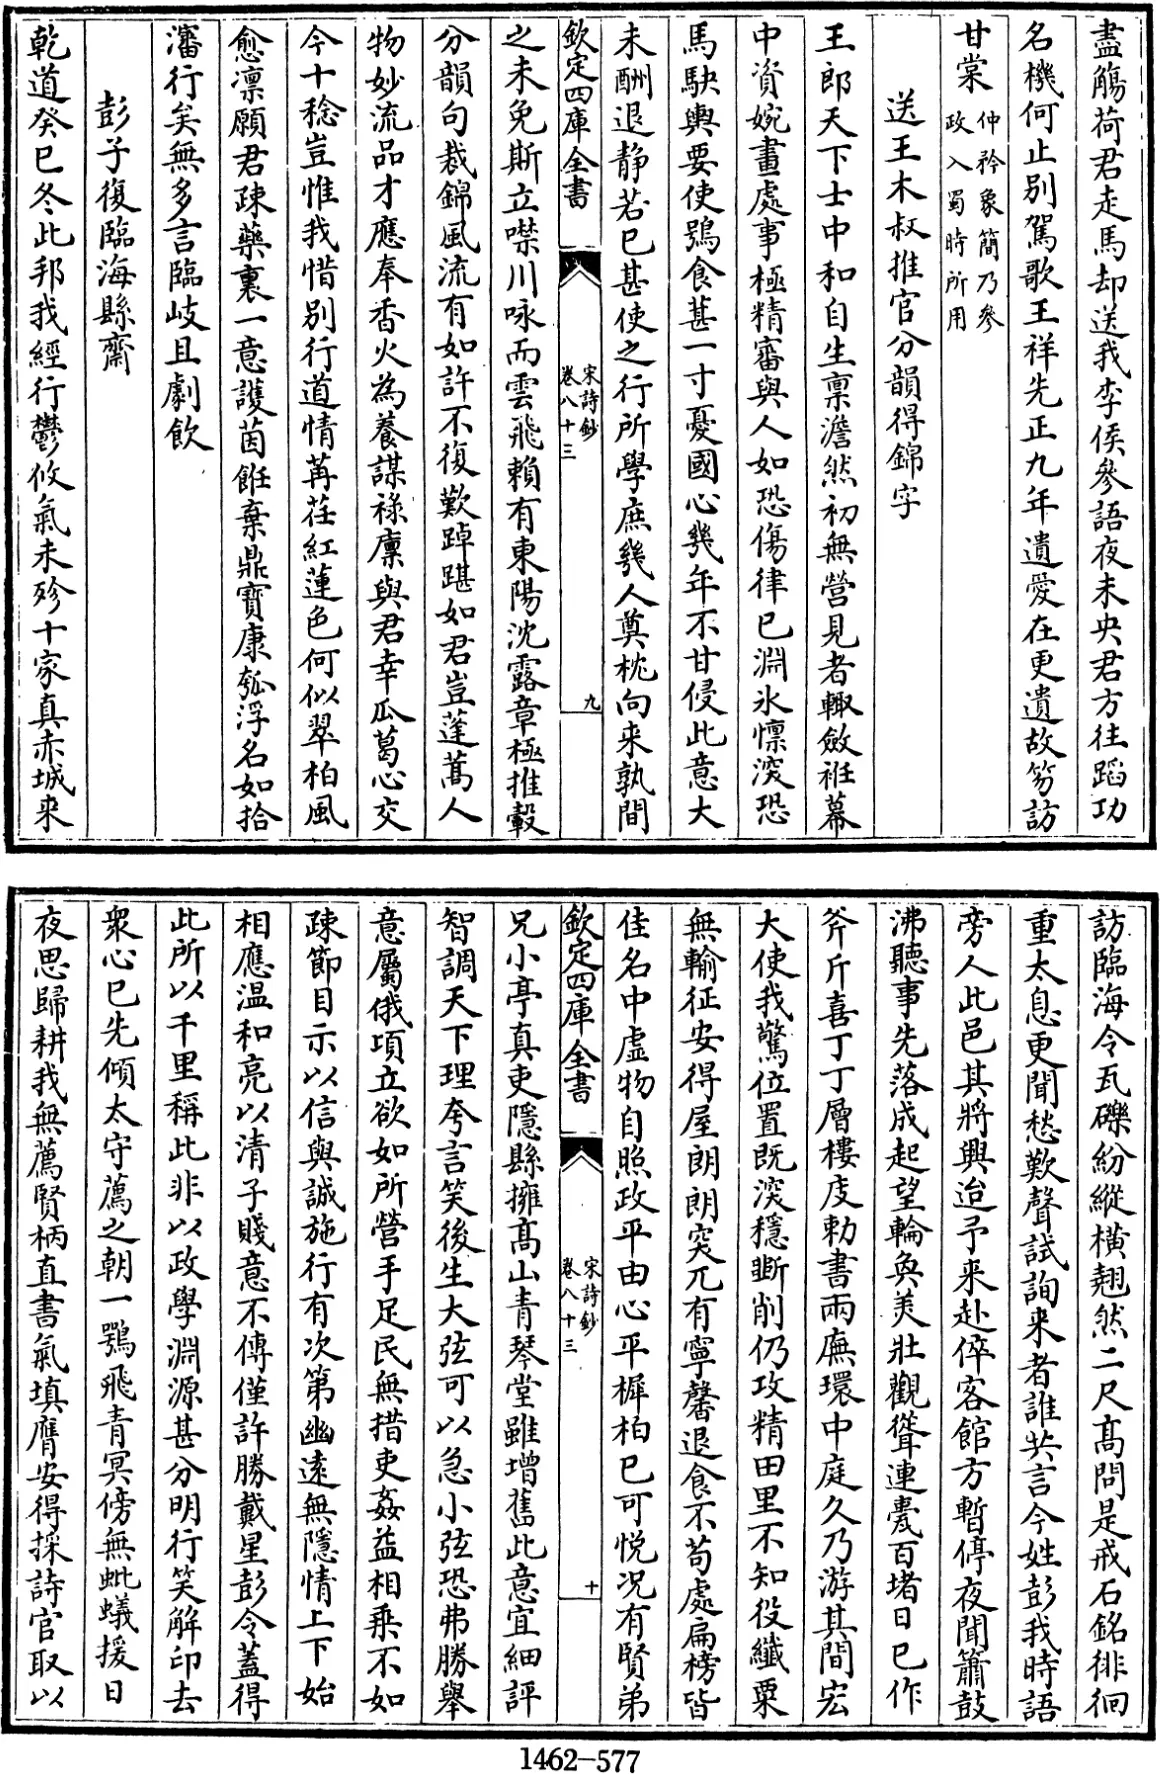 盡觴荷君走馬却送我李侯參語夜未央君方往蹈功
名機何止別駕歌王祥先正九年遺愛在更遺故笏訪
甘棠仲矜象簡乃參
政入蜀時所用
送王木叔推官分韻得錦字
王郎天下士中和自生禀澹然初無營見者輙斂袵幕
中資婉畫處事極精審與人如恐傷律已淵氷懍深恐
馬駃輿要使鵶食甚一寸憂國心幾年不甘侵此意大
未酬退静若已甚使之行所學庶幾人奠枕向来孰間
欽定四庫全書
宋詩鈔
卷八十三
九
之未免斯立噤川咏而雲飛賴有東陽沈露章極推轂
分韻句裁錦風流有如許不復歎踔踸如君豈蓬蒿人
物妙流品才應奉香火為養謀祿廪與君幸瓜葛心交
今十稔豈惟我惜别行道情苒荏紅蓮色何似翠柏風
愈凛願君疎藥裹一意護茵飪棄鼎寶康瓠浮名如拾
瀋行矣無多言臨岐且劇飲
彭子復臨海縣齋
乾道癸巳冬此邦我經行鬱攸氣未殄十家真赤城来
訪臨海令瓦礫紛縱横翹然二尺髙問是戒石銘徘徊
重太息更聞愁歎聲試詢来者誰共言今姓彭我時語
旁人此邑其將興迨予来赴倅客館方暫停夜聞簫鼓
沸聽事先落成起望輪奐美壯觀聳連甍百堵日已作
斧斤喜丁丁層樓庋勅書兩廡環中庭久乃游其間宏
大使我驚位置既深穩斲削仍攻精田里不知役纖粟
無輸征安得屋朗朗突兀有寧馨退食不苟處扁榜皆
佳名中虚物自照政平由心平樨柏已可悦况有賢弟
欽定四庫全書
宋詩鈔
卷八十三
十
兄小亭真吏隱縣擁髙山青琴堂雖增舊此意宜細評
智調天下理夸言笑後生大弦可以急小弦恐弗勝舉
意屬俄頃立欲如所營手足民無措吏姦益相乗不如
疎節目示以信與誠施行有次第幽逺無隱情上下始
相應温和亮以清子賤意不傳僅許勝戴星彭令蓋得
此所以千里稱此非以政學淵源甚分明行笑解印去
衆心已先傾太守薦之朝一鶚飛青冥傍無蚍蟻援日
夜思歸耕我無薦賢柄直書氣填膺安得採詩官取以
1462-577